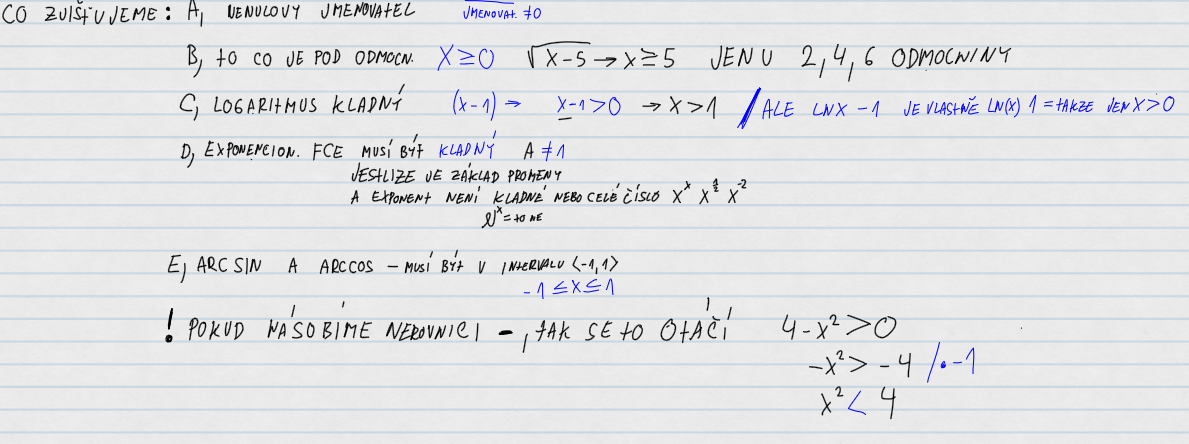 CO ZJIŠŤUJEME: A, NENULOVÝ JMENOVATEL JMENOVAT. ≠0
B, to CO JE POD ODMOCN. X≥0 √X-5 → X≥5 JEN U 2,4,6 ODMOCNINY
C, LOGARITMUS KLADNÝ (x-1) → x-1>0 → X>1 / ALE LNX -1 JE VLASTNĚ LN(X) 1 = tAKŽE JEN X>0
D, EXPONENCION. FCE MUSÍ BÝT KLADNÝ A ≠1
JESTLIZE JE ZÁKLAD PROMĚNY
A EXPONENT NENÍ KLADNÉ NEBO CELÉ ČÍSLO X^x X^½ X^-2
^x = to NE
E, ARCSIN A ARCCOS – MUSÍ BÝT V INTERVALU <-1,1>
-1 ≤ X ≤ 1
! POKUD NÁSOBÍME NEROVNICI -, tAK SE tO OtÁČÍ 4-x²>0
-x² > -4 /• -1
x² < 4